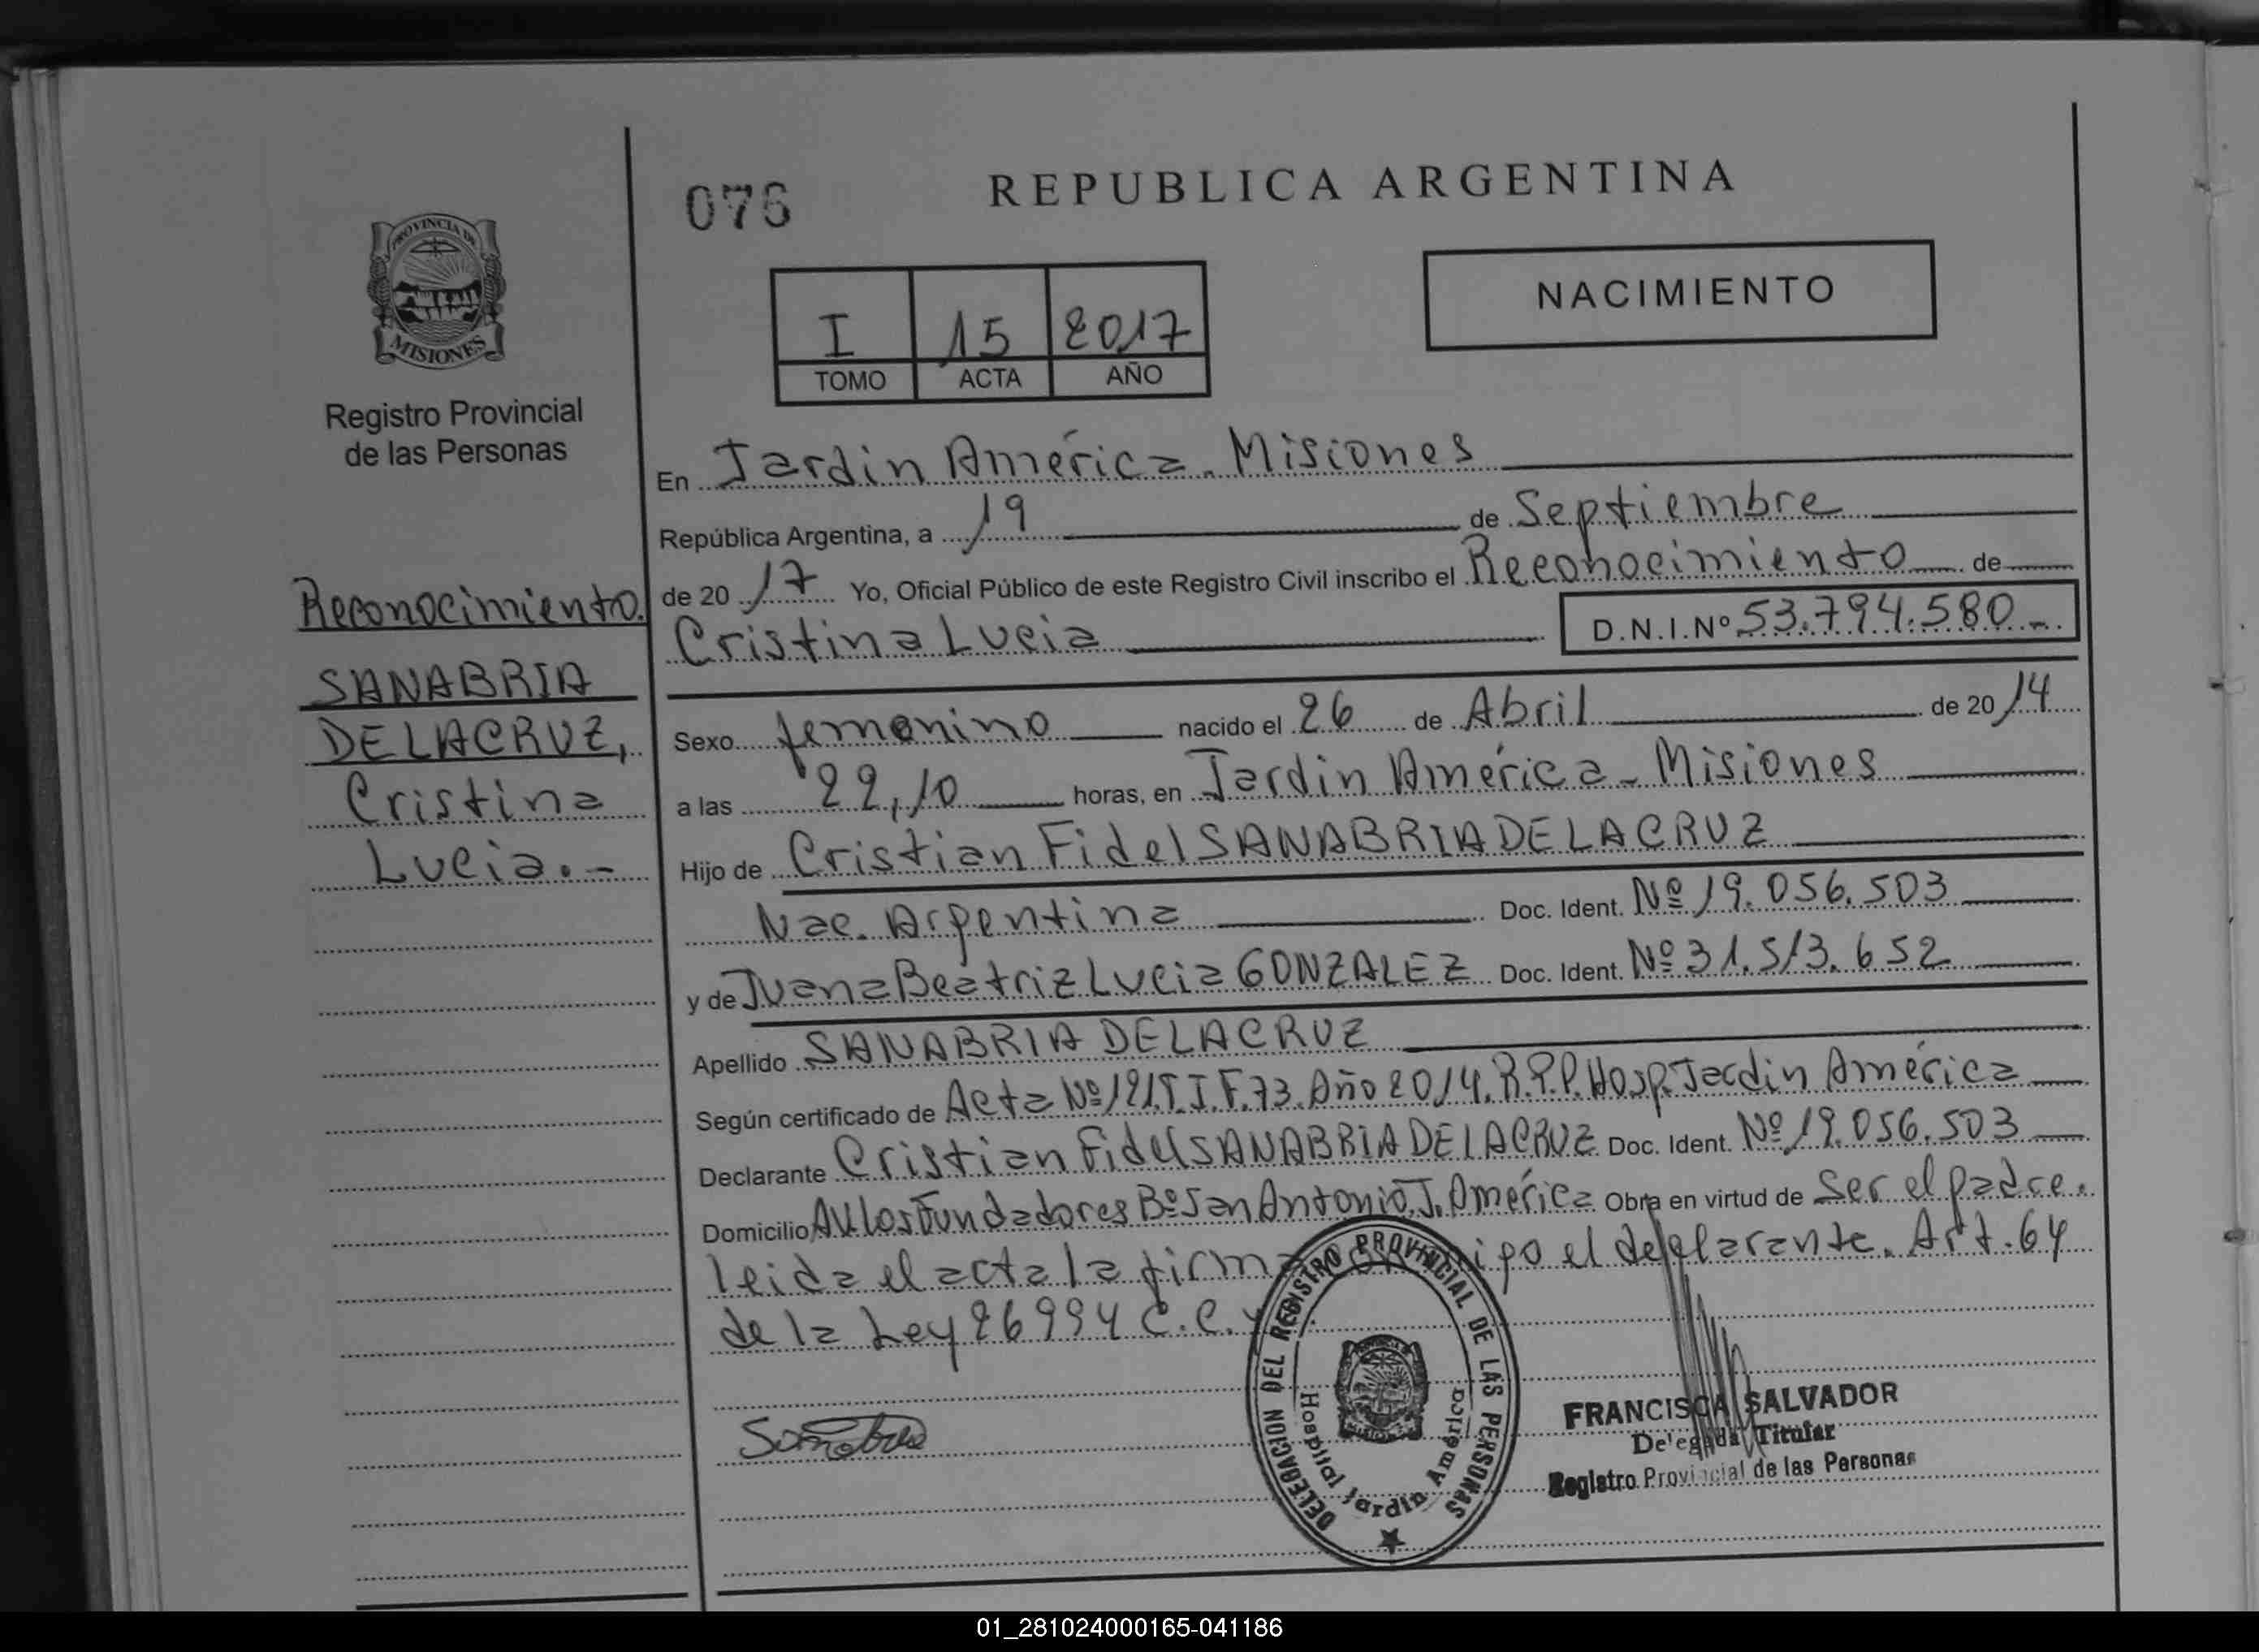 076
REPUBLICA ARGENTINA
PROVINCIA DE
MISIONES
Registro Provincial
de las Personas
NACIMIENTO
I 15 2017
TOMO ACTA AÑO
En Jardin América - Misiones
República Argentina, a 19 de Septiembre
de 20 17 Yo, Oficial Público de este Registro Civil inscribo el Reconocimiento de
Cristina Lucia D.N.I.Nº 53.794.580
Reconocimiento.
SANABRIA
DELACRUZ,
Cristina
Lucia.-
Sexo femenino nacido el 26 de Abril de 20 14
a las 22,10 horas, en Jardin América - Misiones
Hijo de Cristian Fidel SANABRIA DELACRUZ
Nac. Argentina Doc. Ident. Nº 19.056.503
y de Juana Beatriz Lucia GONZALEZ Doc. Ident. Nº 31.513.652
Apellido SANABRIA DELACRUZ
Según certificado de Acta Nº 121.T.I.F.73.Año 2014.R.P.P.Hosp.Jardin América
Declarante Cristian Fidel SANABRIA DELACRUZ Doc. Ident. Nº 19.056.503
Domicilio Av.Los Fundadores Bº San Antonio.J.América Obra en virtud de Ser el padre.
leida el acta la firma el declarante. Art. 64
de la Ley 26994 C.C.y
DELEGACION DEL REGISTRO PROVINCIAL DE LAS PERSONAS
Hospital Jardín América
FRANCISCA SALVADOR
Delegada Titular
Registro Provincial de las Personas
01_281024000165-041186